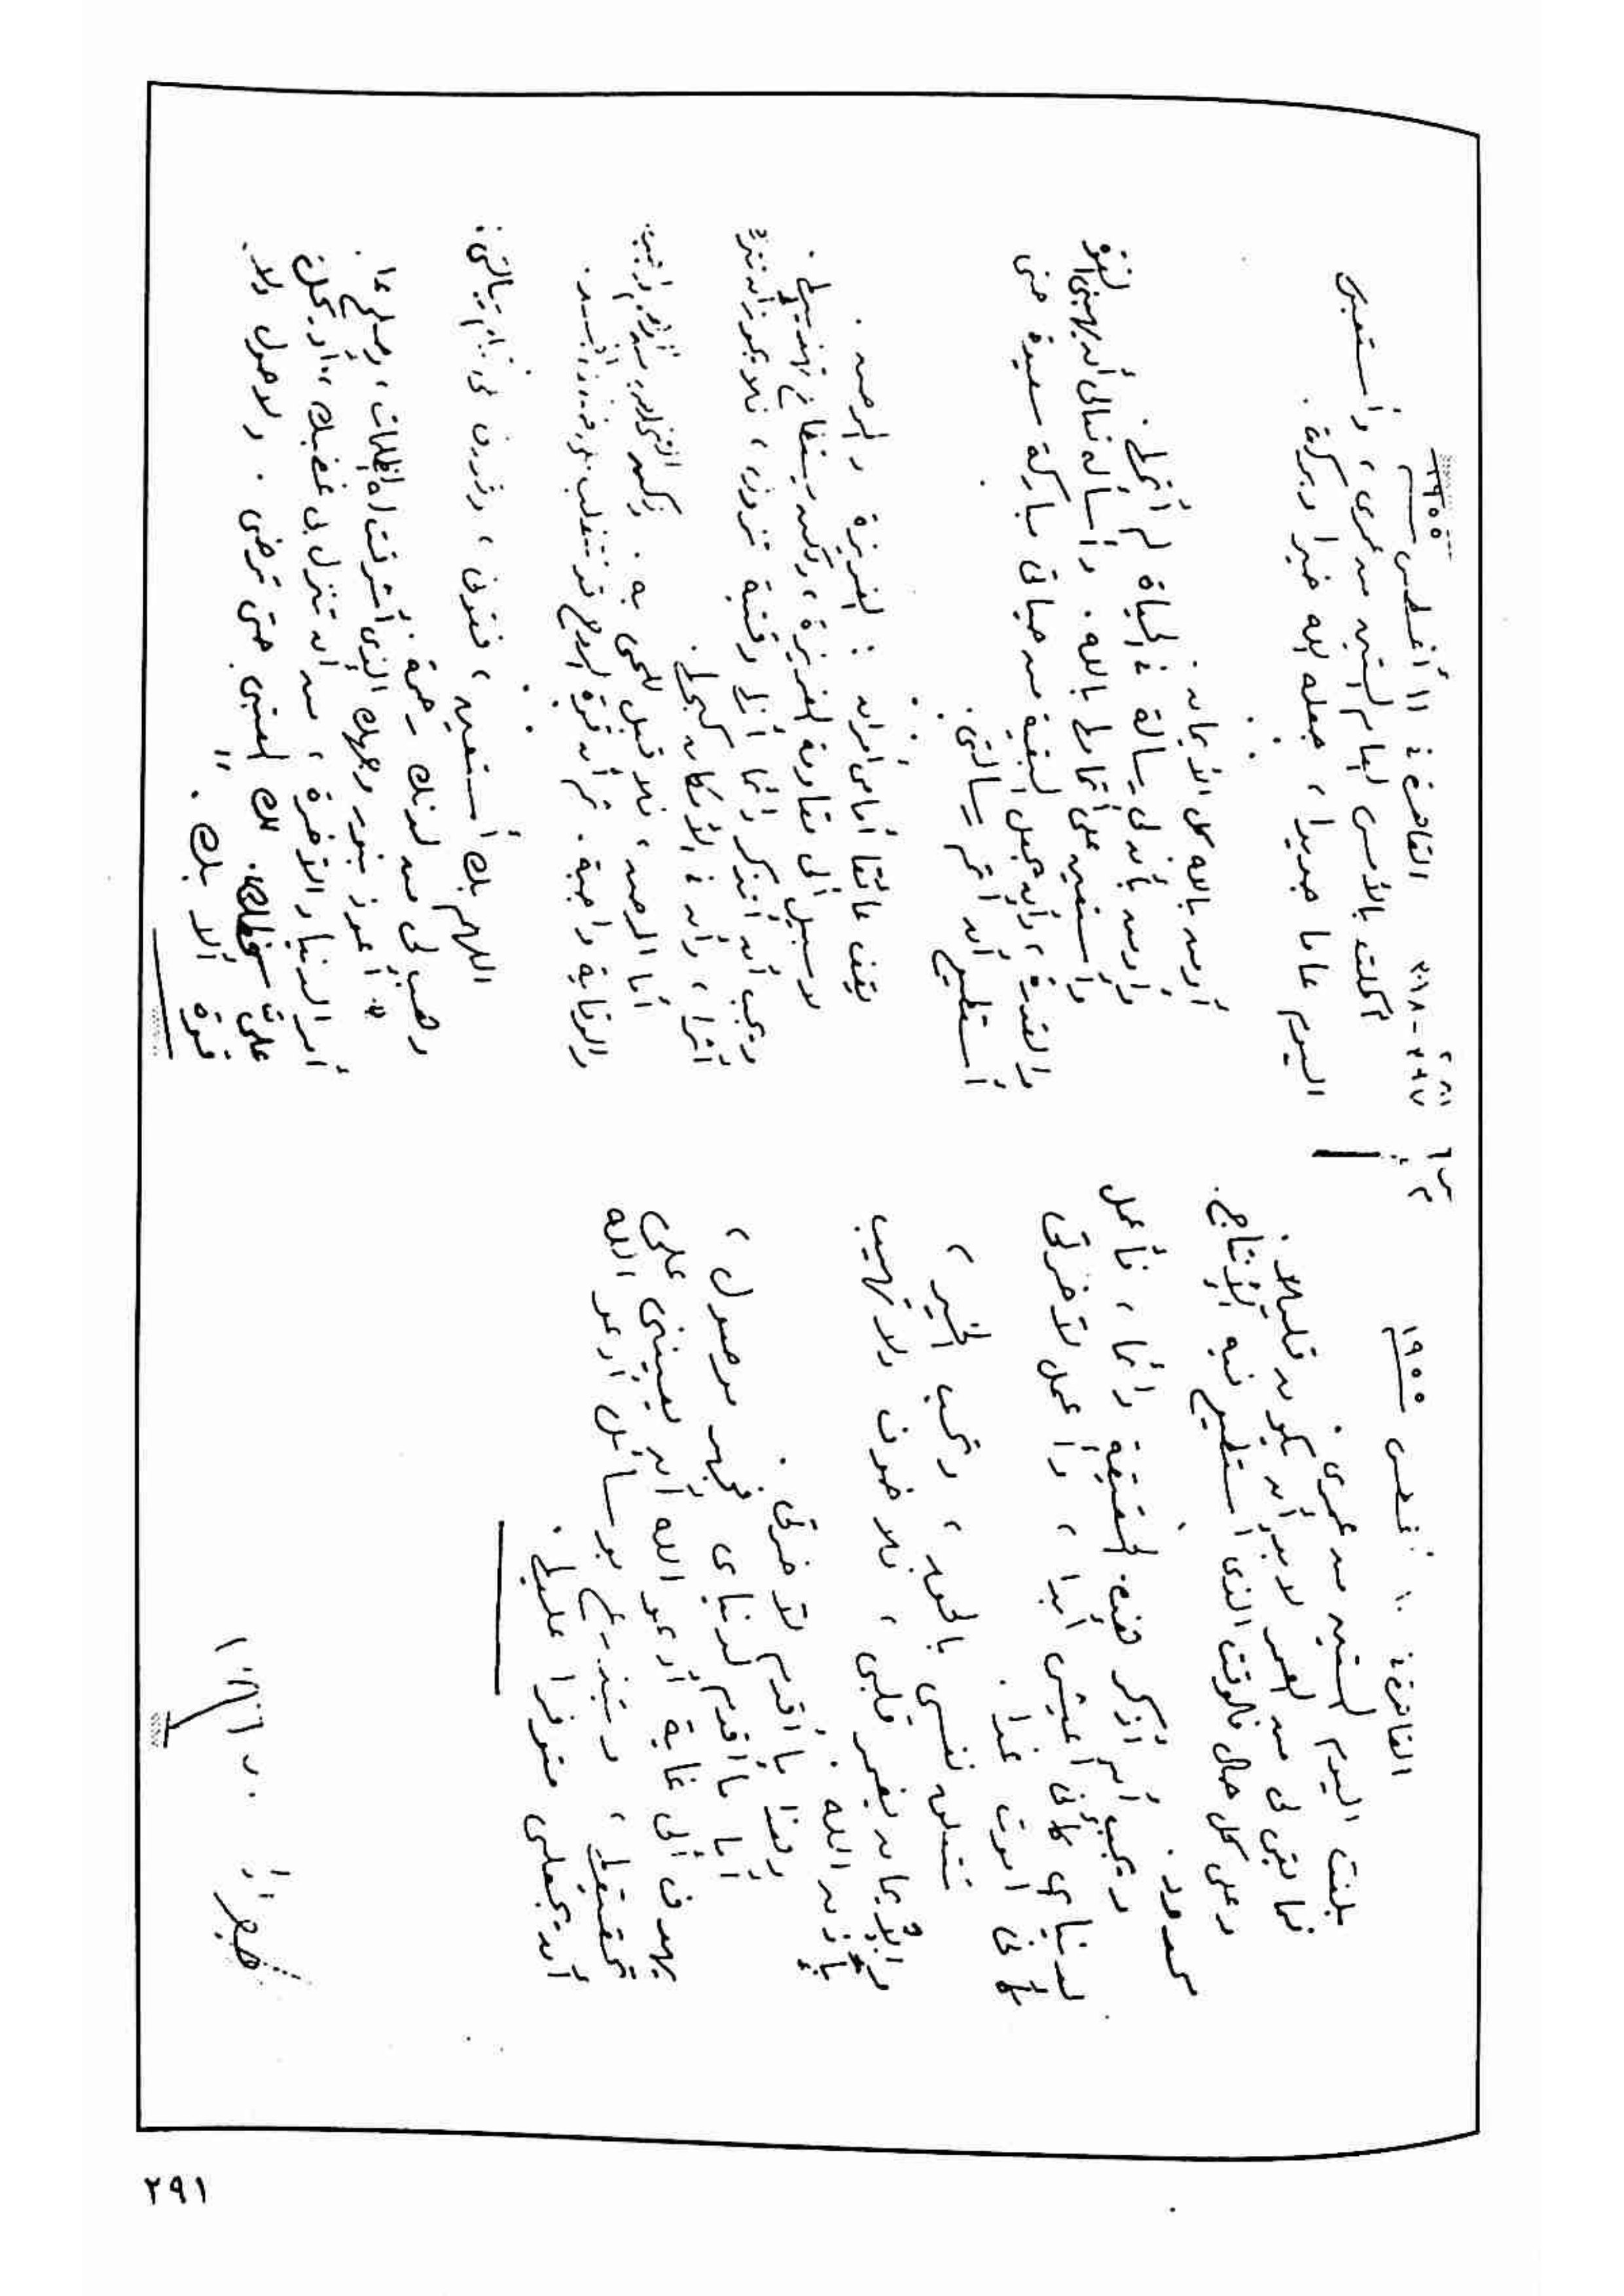 القاهرة في ١٠ أغسطس ١٩٥٥
بلغت اليوم الستين من عمري .
فما بقي لي من العمر لا بد أن يكون قليلا .
وعلى كل حال فالوقت الذي استطيع فيه الإنتاج
محدود .
ويجب أن أذكر هذه الحقيقة دائما ، فأعمل
لدنياي كأني أعيش أبدا ، وأعمل لآخرتي
كأني أموت غدا .
تمتلئ نفسي بالحب ، وتحب الخير ،
والإيمان يغمر قلبي ، فلا خوف ولا تهيب
بإذن الله .
وهذا ما أقدم لآخرتي .
أما ما أقدم لدنياي فجهد موصول ،
يهدف إلى غاية أدعو الله أن يعينني على
تحقيقها ، ويتذرع بوسائل أدعو الله
أن يجعلني متوفرا عليها .
القاهرة في ١١ أغسطس ١٩٥٥
أكملت بالأمس العام الستين من عمري ، وأستقبل
اليوم عاما جديدا ، جعله الله خيرا وبركة .
أومن بالله كل الإيمان .
وأومن بأن لي رسالة في الحياة لم أتمها .
وأستعين على إتمامها بالله . وأسأله تعالى أن يهبني القوة
والقدرة ، وأن يجعل البقية من حياتي مباركة سعيدة حتى
أستطيع أن أتم رسالتي .
يقف عائقا أمامي أمران : الغريزة والمرض .
لا سبيل إلى مقاومة الغريزة ، ولكن يستطاع تهذيبها .
ويجب أن أتذكر دائما أنها وقتية تزول ، فلا يجوز أن تترك
أثرا ، وأن في الإمكان كبحها .
أما المرض ، فلا قبل للمرء به . ولكن
والوقاية واجبة . ثم أن قوة الروح قد تتغلب على
اللهم بك أستعين ، فقوني ، وخذ بيدي في إتمام رسالتي .
وهب لي من لدنك رحمة .
" أعوذ بنور وجهك الذي أشرقت له الظلمات ، وصلح عليه
أمر الدنيا والآخرة ، من أن تنزل بي غضبك ، أو يحل
علي سخطك . لك العتبى حتى ترضى . ولا حول ولا
قوة إلا بك . "
٢٩١